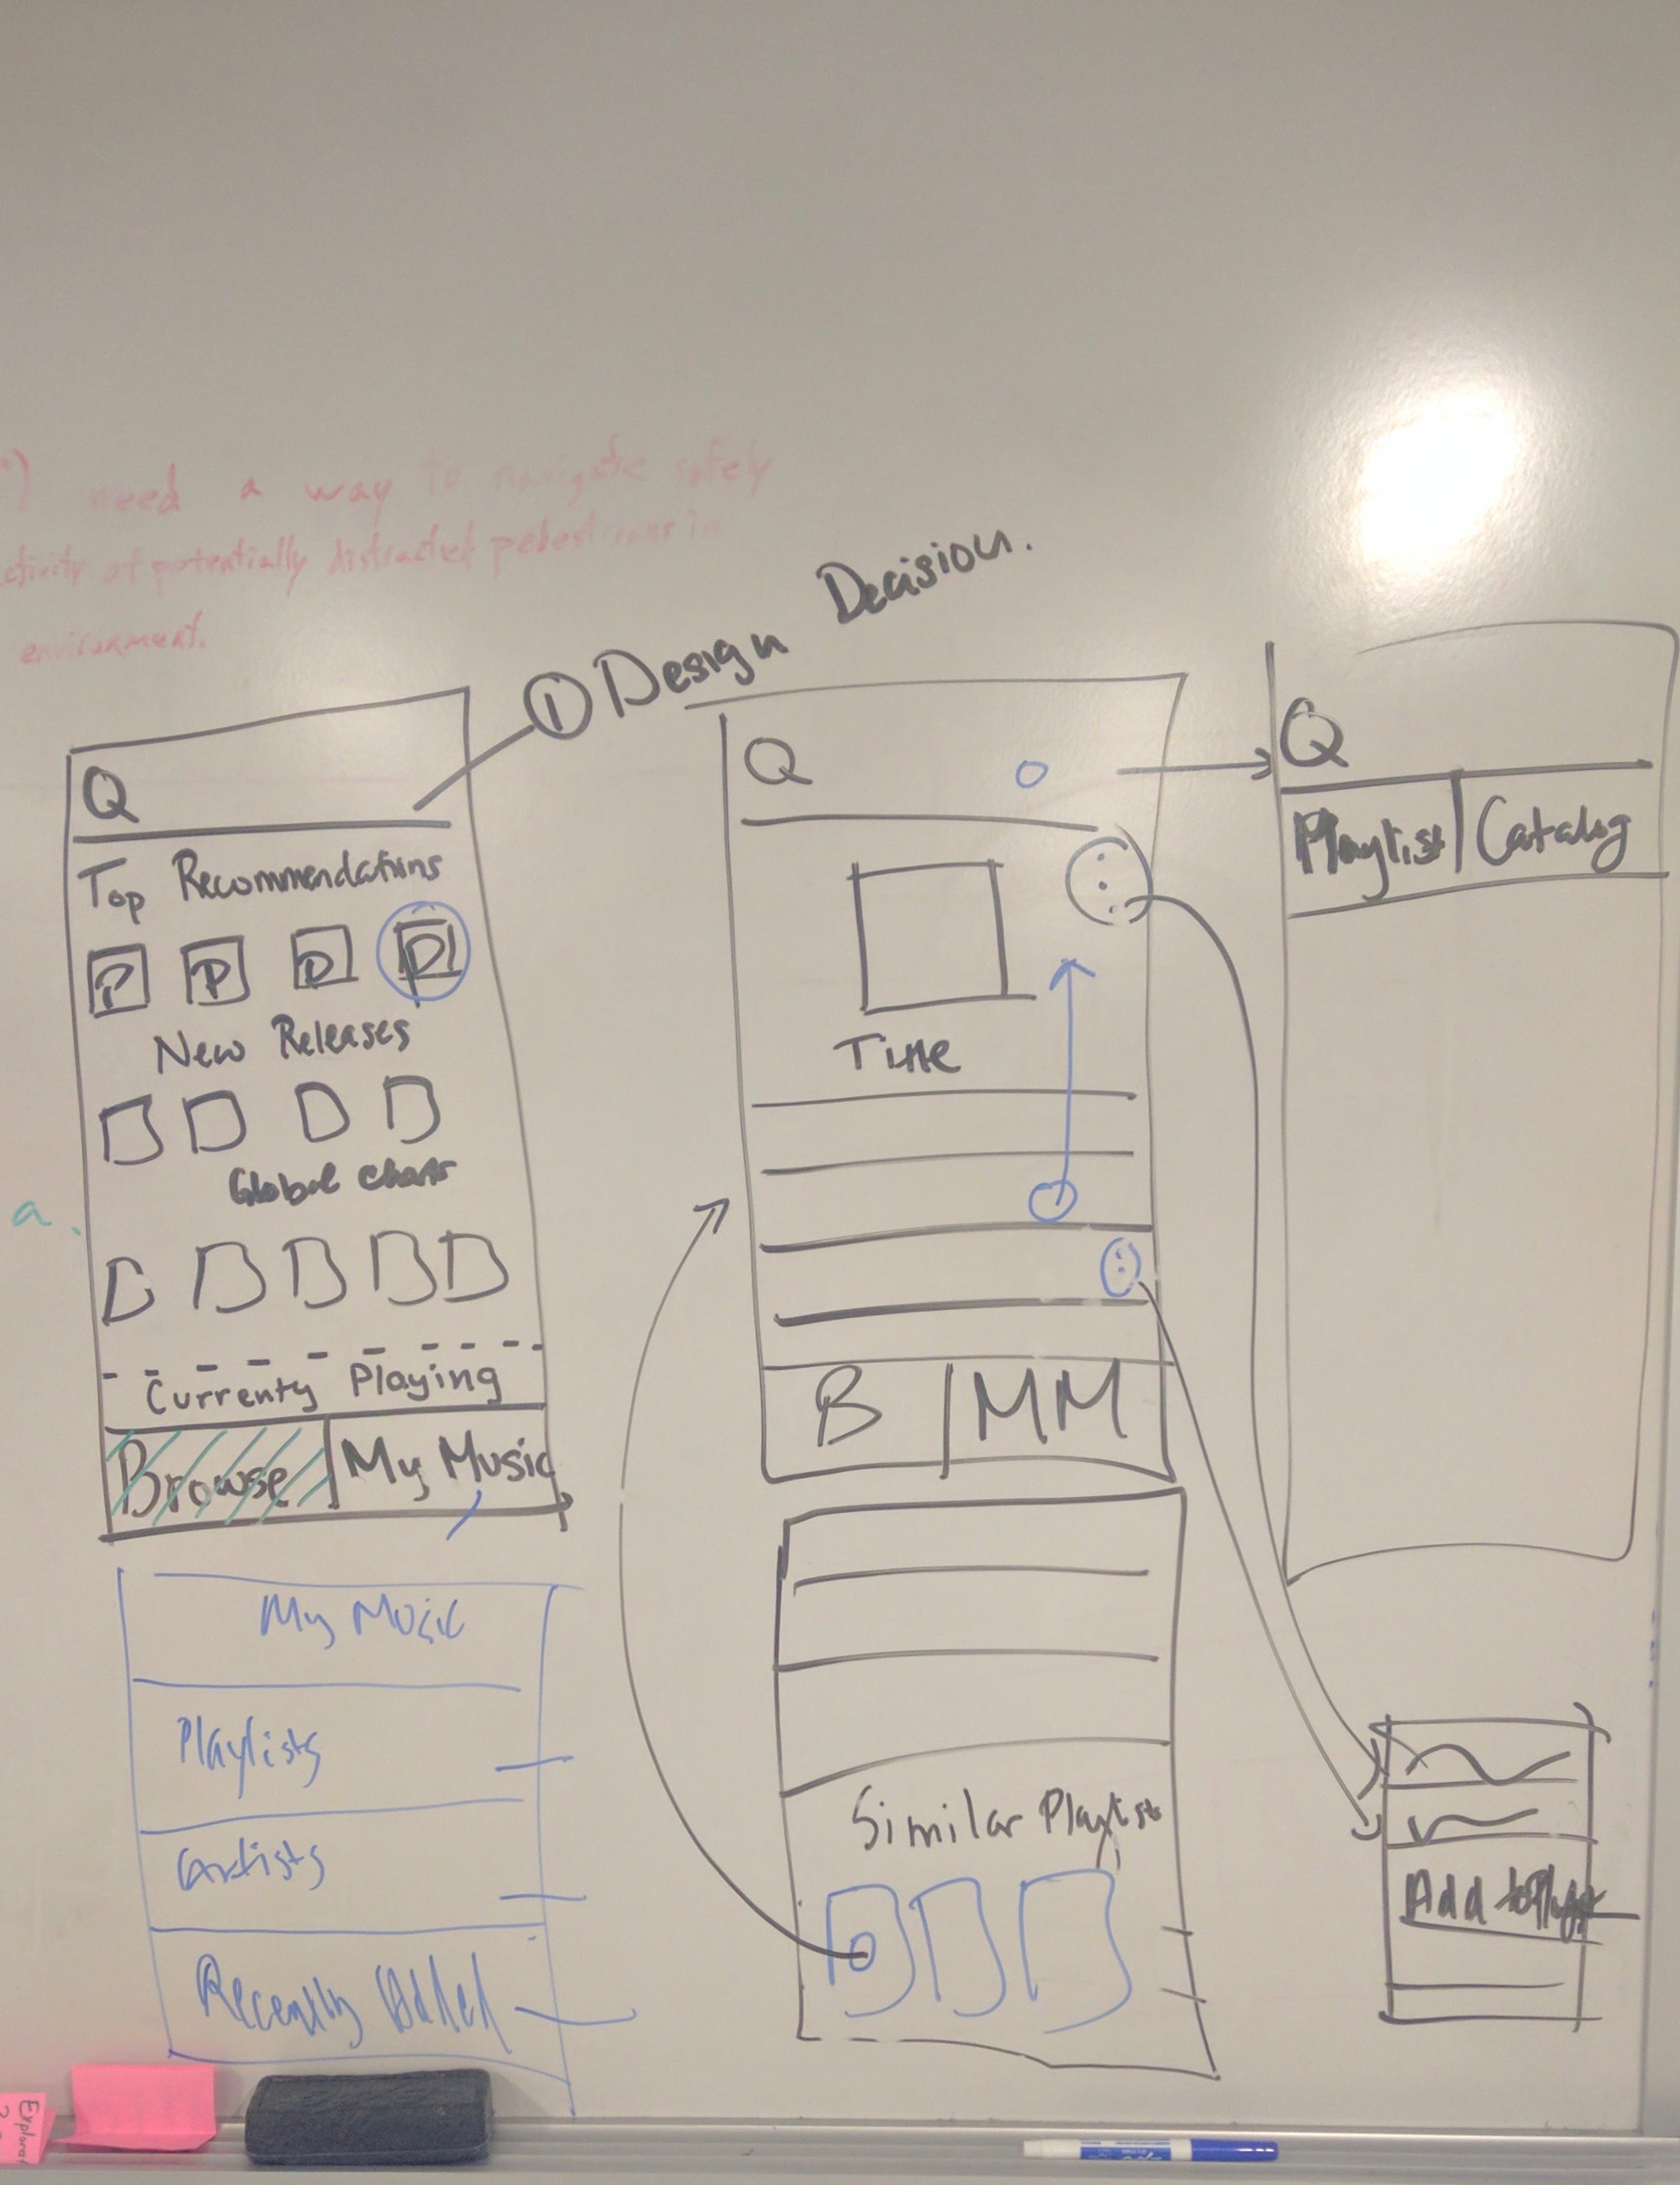 need a way to navigate safely
ctivity of potentially distracted pedestrians in
environment.
① Design Decision.
Q
Top Recommendations
P P D
New Releases
Global charts
Currenty Playing
Browse | My Music
a.
My Music
Playlists
Artists
Recently Added
Q
Title
B | MM
Similar Playlists
Q
Playlist | Catalog
Add to Playlist
Explorat